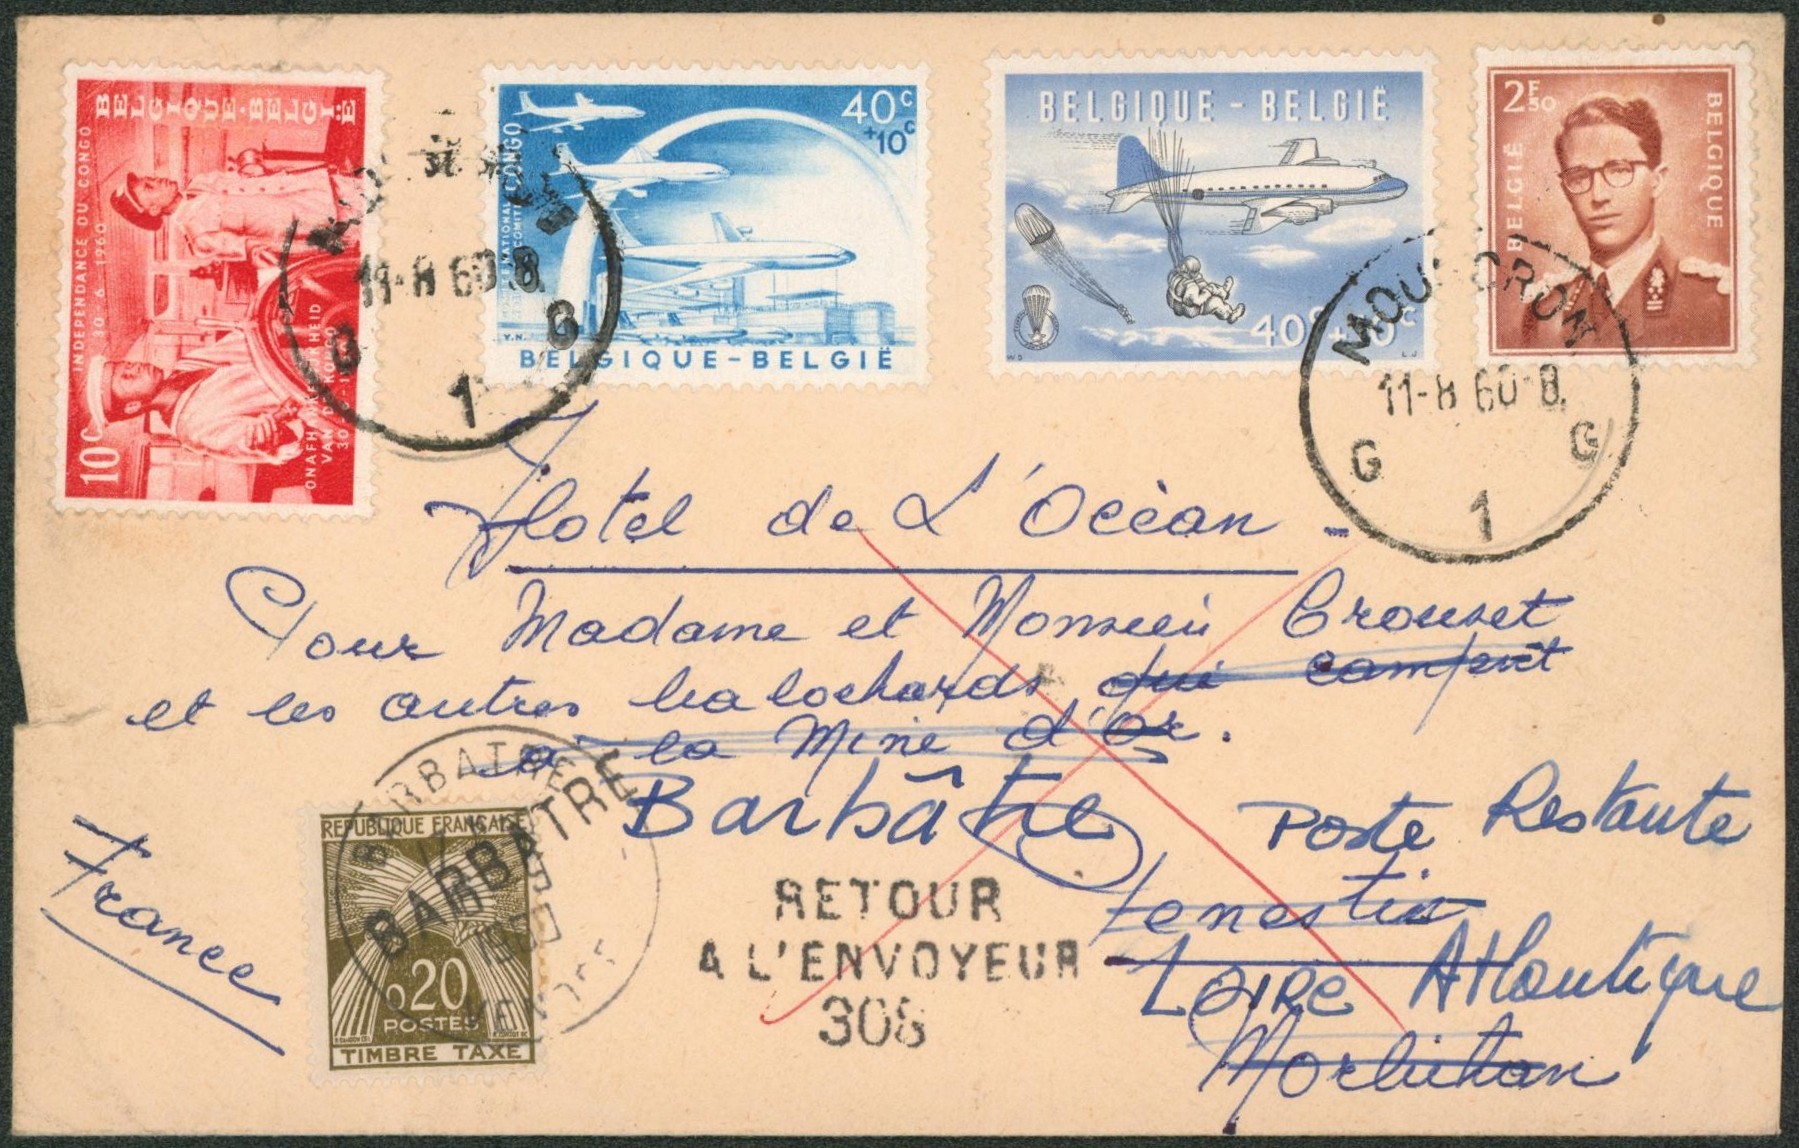 BELGIQUE-BELGIË
INDEPENDANCE DU CONGO
30 6 1960
ONAFHANKELIJKHEID
VAN DE KONGO
10c
40c
+10c
BELGIQUE-BELGIË
BELGIQUE - BELGIË
2F50
BELGIE
BELGIQUE
11-8 60-8
G G
1
MOUSCRON
11-8 60-8
G G
1
Hotel de L'Océan -
Pour Madame et Monsieur Crouset
et les autres balochards qui campent
à la Mine d'Or.
Barbâtre Poste Restante
Penestin
Loire Atlantique
Morbihan
France
BARBATRE
VENDEE
BARBATRE
REPUBLIQUE FRANÇAISE
0,20
POSTES
TIMBRE TAXE
RETOUR
A L'ENVOYEUR
308